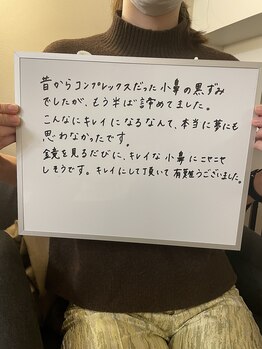 昔からコンプレックスだった小鼻の黒ずみ
でしたが、もう半ば諦めてました。
こんなにキレイになるなんて、本当に夢にも
思わなかったです。
鏡を見るたびに、キレイな小鼻にニヤニヤ
しそうです。キレイにして頂いて有難うございました。